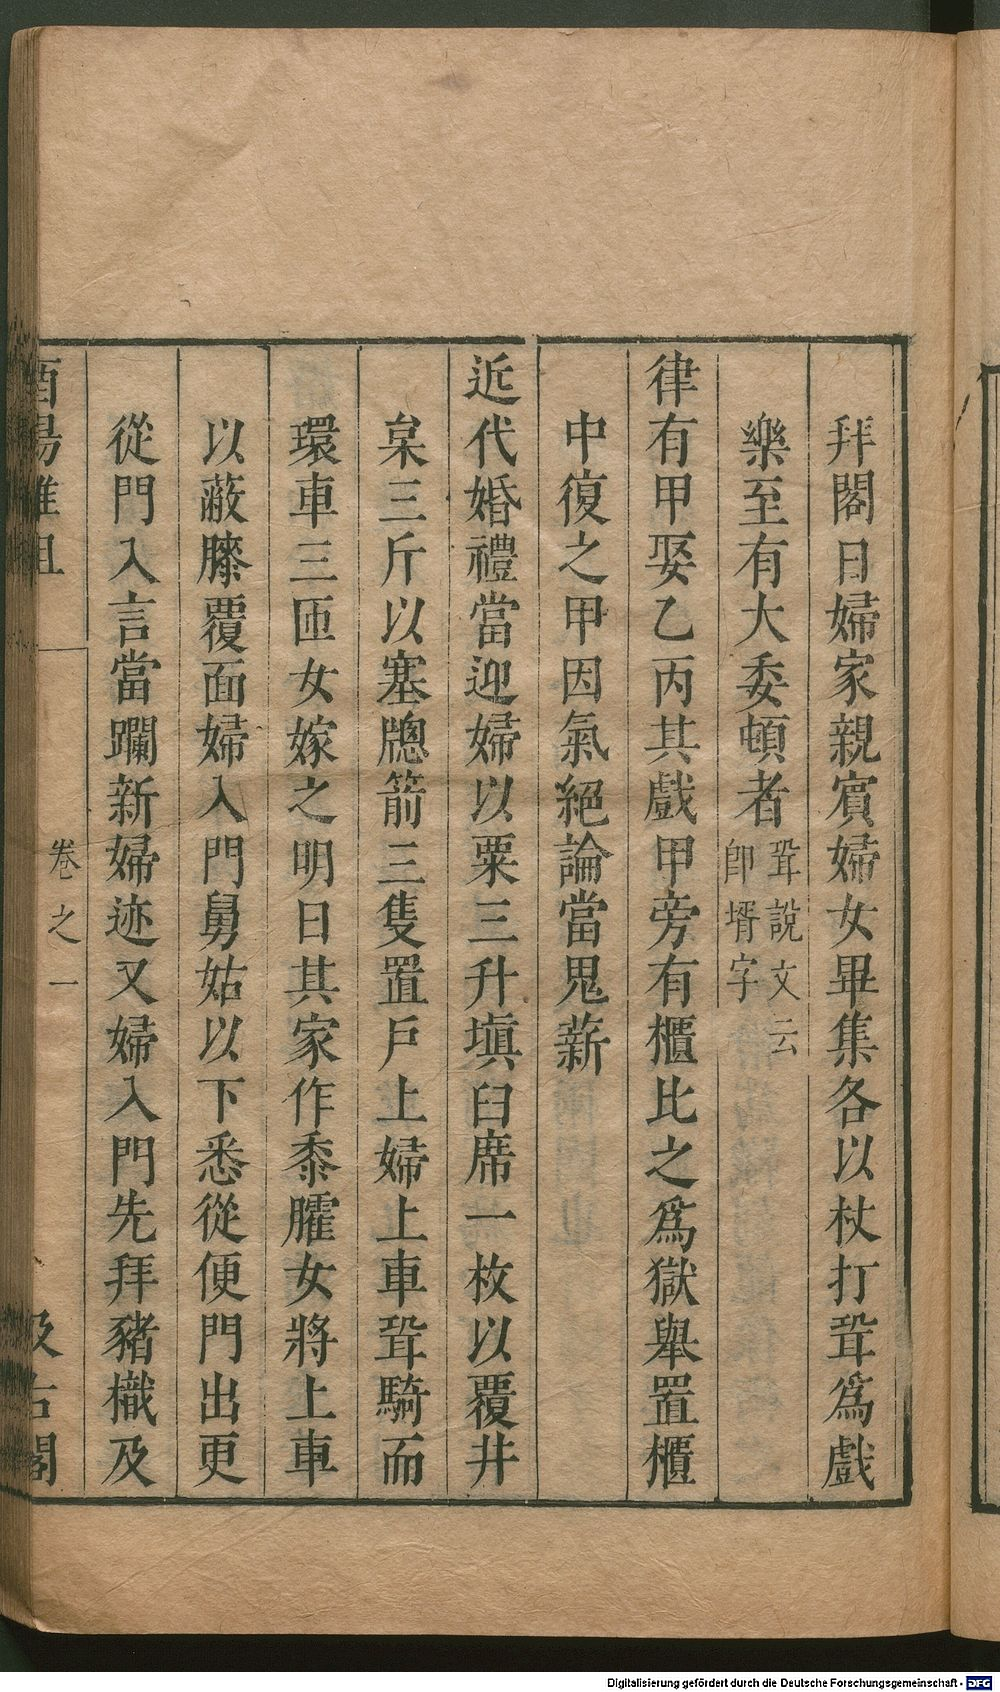 拜閣日婦家親賓婦女畢集各以杖打聟爲戲
樂至有大委頓者
聟說文云
即壻字
律有甲娶乙丙共戲甲旁有櫃比之爲獄舉置櫃
中復之甲因氣絕論當鬼薪
近代婚禮當迎婦以粟三升塡臼席一枚以覆井
枲三斤以塞牕箭三隻置戶上婦上車聟騎而
環車三匝女嫁之明日其家作黍臛女將上車
以蔽膝覆面婦入門舅姑以下悉從便門出更
從門入言當躝新婦迹又婦入門先拜豬樴及
酉陽雜俎
卷之一
汲古閣
Digitalisierung gefördert durch die Deutsche Forschungsgemeinschaft - DFG